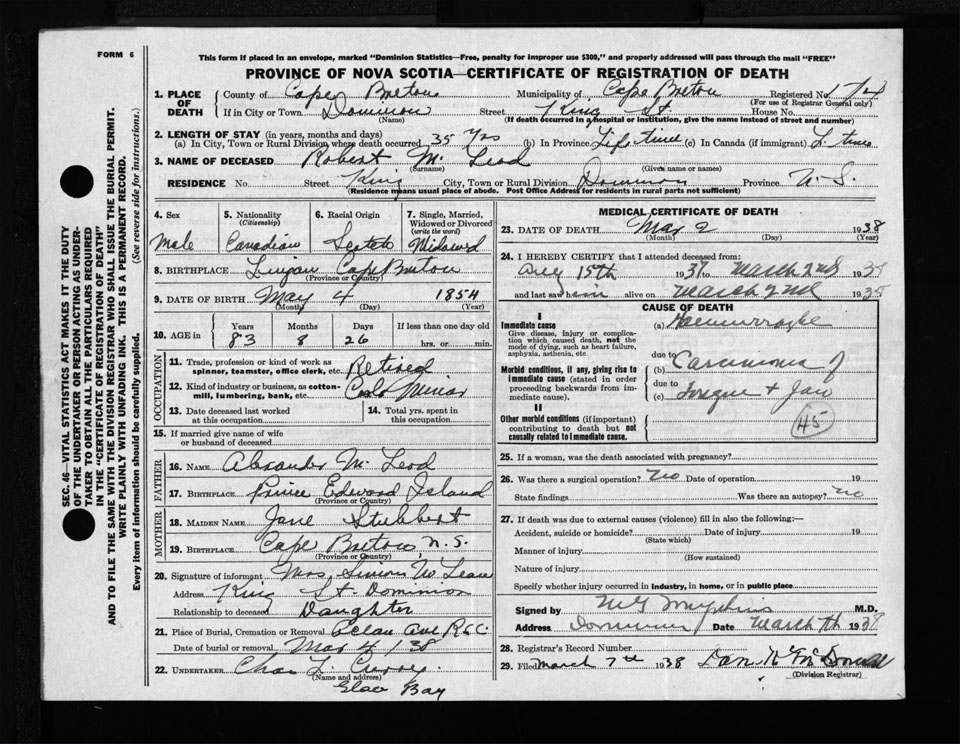 FORM 6
This form if placed in an envelope, marked "Dominion Statistics—Free, penalty for improper use $300," and properly addressed will pass through the mail "FREE"
PROVINCE OF NOVA SCOTIA—CERTIFICATE OF REGISTRATION OF DEATH
SEC. 46—VITAL STATISTICS ACT MAKES IT THE DUTY
OF THE UNDERTAKER OR PERSON ACTING AS UNDER-
TAKER TO OBTAIN ALL THE PARTICULARS REQUIRED
IN THE "CERTIFICATE OF REGISTRATION OF DEATH"
AND TO FILE THE SAME WITH THE DIVISION REGISTRAR WHO SHALL ISSUE THE BURIAL PERMIT.
WRITE PLAINLY WITH UNFADING INK. THIS IS A PERMANENT RECORD.
Every item of information should be carefully supplied. (See reverse side for instructions.)
1. PLACE OF DEATH
County of Cape Breton Municipality of Cape Breton Registered No.
(For use of Registrar General only)
If in City or Town Dominion Street King St House No.
(Name) (If death occurred in a hospital or institution, give the name instead of street and number)
2. LENGTH OF STAY (in years, months and days)
(a) In City, Town or Rural Division where death occurred 35 Yrs (b) In Province Life time (c) In Canada (if immigrant) L. time
3. NAME OF DECEASED Robert Mc Leod
(Surname) (Given name or names)
RESIDENCE No. Street King City, Town or Rural Division Dominion Province N. S.
(Residence means usual place of abode. Post Office Address for residents in rural parts not sufficient)
4. Sex 5. Nationality 6. Racial Origin 7. Single, Married,
(Citizenship) Widowed or Divorced
(write the word)
Male Canadian Scotch Widowed
8. BIRTHPLACE Lingan Cape Breton
(Province or Country)
9. DATE OF BIRTH May 4 1854
(Month) (Day) (Year)
10. AGE in Years Months Days If less than one day old
83 8 26 hrs. or min.
OCCUPATION
11. Trade, profession or kind of work as
spinner, teamster, office clerk, etc. Retired
12. Kind of industry or business, as cotton-
mill, lumbering, bank, etc.
13. Date deceased last worked
at this occupation
14. Total yrs. spent in
this occupation
15. If married give name of wife
or husband of deceased
FATHER
16. NAME Alexander Mc Leod
17. BIRTHPLACE Prince Edward Island
(Province or Country)
MOTHER
18. MAIDEN NAME Jane Stubbert
19. BIRTHPLACE Cape Breton, N. S.
(Province or Country)
20. Signature of informant Mrs. Simon Mc Lean
Address King St. Dominion
Relationship to deceased Daughter
21. Place of Burial, Cremation or Removal Ave
Date of burial or removal Mar 4 / 38
22. UNDERTAKER Chas L Curry
(Name and address)
Glace Bay
MEDICAL CERTIFICATE OF DEATH
23. DATE OF DEATH Mar 2 1938
(Month) (Day) (Year)
24. I HEREBY CERTIFY that I attended deceased from:
Aug 15th 1937 to March 2nd 193
and last saw him alive on March 2nd 193
CAUSE OF DEATH
I
Immediate cause
Give disease, injury or complica-
tion which caused death, not the
mode of dying, such as heart failure,
asphyxia, asthenia, etc.
(a) Haemorraghe
due to
Morbid conditions, if any, giving rise to
immediate cause (stated in order
proceeding backwards from im-
mediate cause).
(b) Carcinoma of
due to
(c) Tongue + Jaw
45
II
Other morbid conditions (if important)
contributing to death but not
causally related to immediate cause.
25. If a woman, was the death associated with pregnancy?
26. Was there a surgical operation? No Date of operation 19
State findings Was there an autopsy? No
27. If death was due to external causes (violence) fill in also the following:—
Accident, suicide or homicide? Date of injury 19
(State which)
Manner of injury
(How sustained)
Nature of injury
Specify whether injury occurred in industry, in home, or in public place
Signed by M.D.
Address Dominion Date March 7th 1938
28. Registrar's Record Number
29. Filed March 7th 1938 Dan McDonald
(Division Registrar)